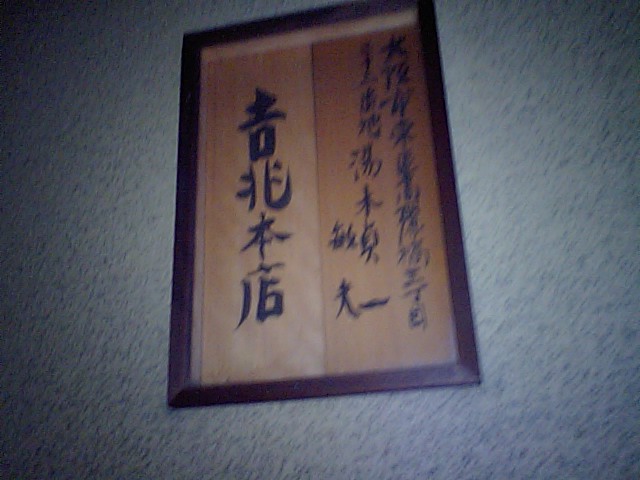 大阪市東區高麗橋三丁目
番地 湯木貞一
敏夫
吉兆本店